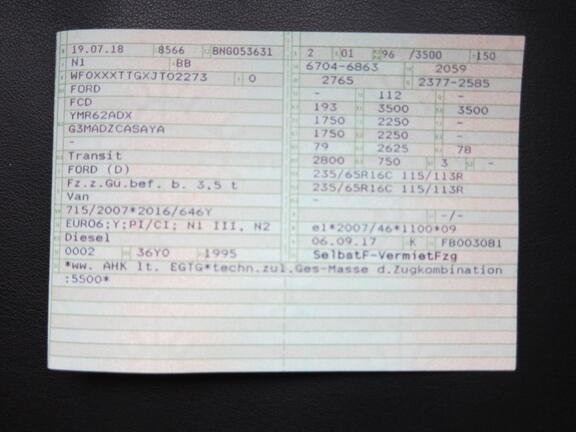 19.07.18 8566 BNG053631
N1 BB
WF0XXXTTGXJT02273 0
FORD
FCD
YMR62ADX
G3MADZCASAYA
-
Transit
FORD (D)
Fz.z.Gü.bef. b. 3,5 t
Van
715/2007*2016/646Y
EURO6;Y;PI/CI; N1 III, N2
Diesel
0002 36Y0 1995
*ww. AHK lt. EGTG*techn.zul.Ges-Masse d.Zugkombination
:5500*
2 01 96 /3500 150
6704-6863 2059
2765 2377-2585
- 112 -
193 3500 3500
1750 2250 -
1750 2250 -
79 2625 78
2800 750 3 -
235/65R16C 115/113R
235/65R16C 115/113R
-
-/-
e1*2007/46*1100*09
06.09.17 K FB003081
SelbstF-VermietFzg